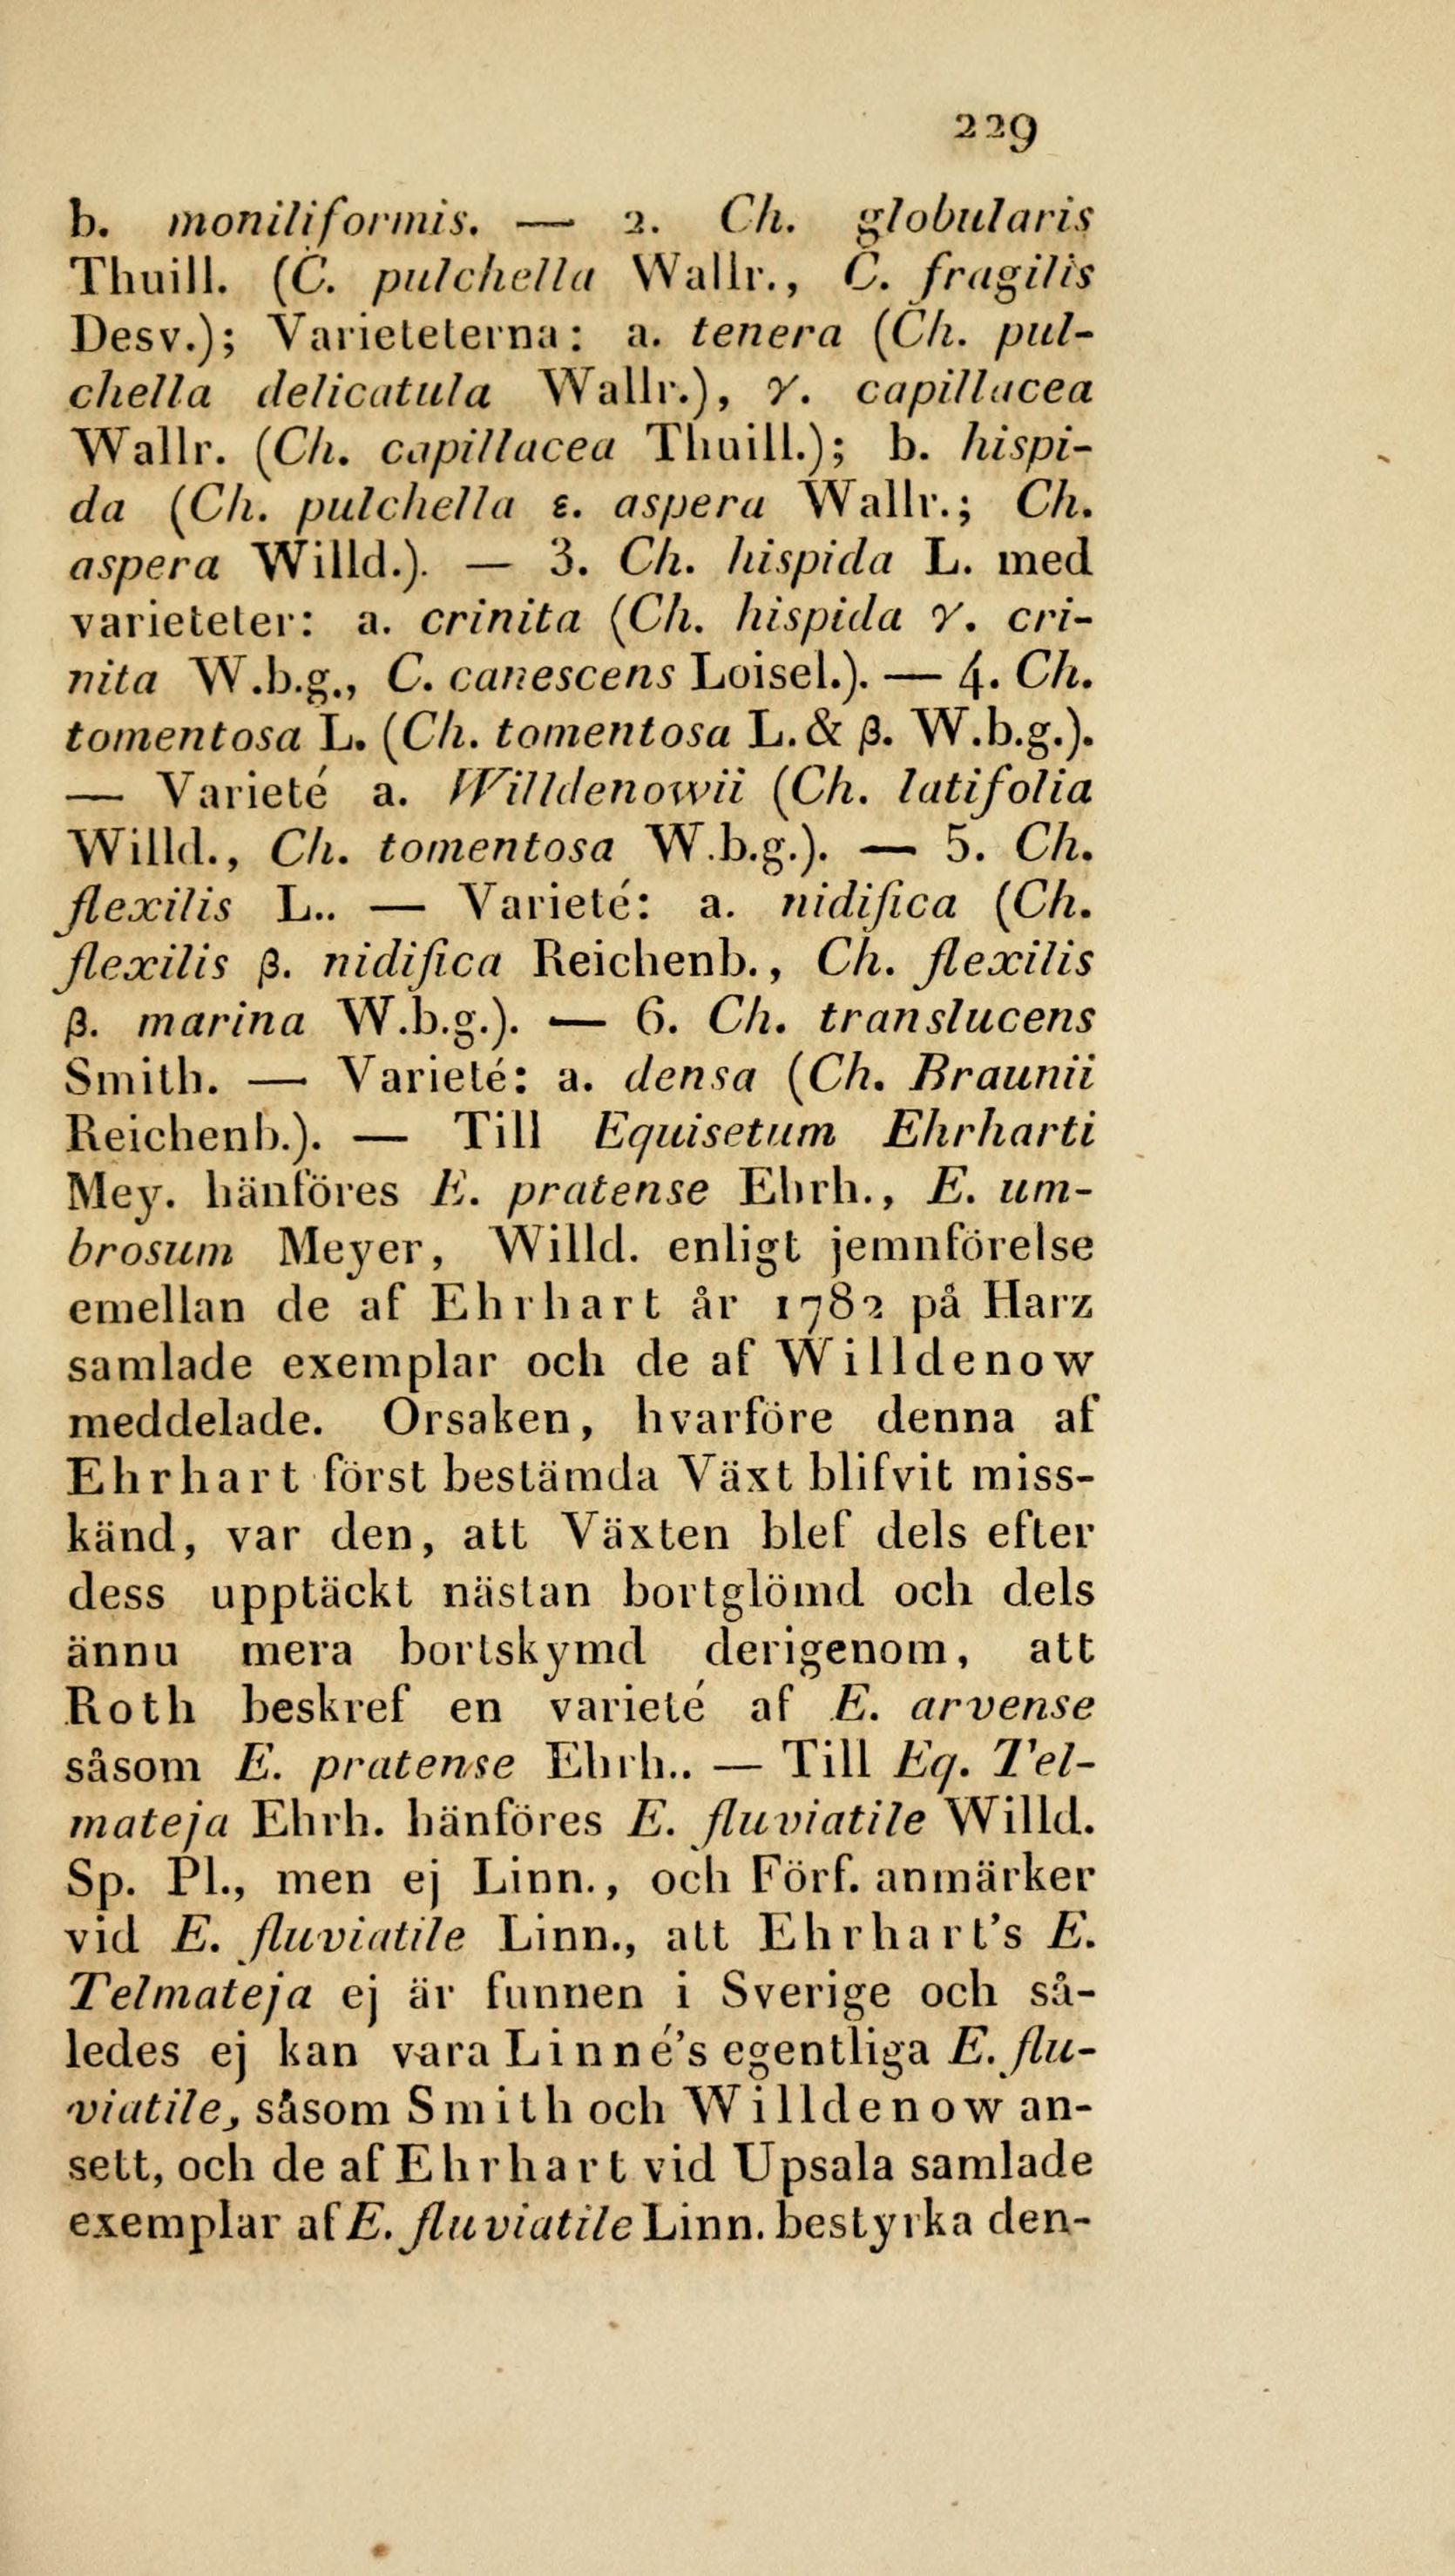 229
b. moniliformis. — 2. Ch. globularis
Thuill. (C. pulchella Wallr., C. fragilis
Desv.); Varieteterna: a. tenera (Ch. pul-
chella delicatula Wallr.), γ. capillacea
Wallr. (Ch. capillacea Thuill.); b. hispi-
da (Ch. pulchella ε. aspera Wallr.; Ch.
aspera Willd.). — 3. Ch. hispida L. med
varieteter: a. crinita (Ch. hispida γ. cri-
nita W.b.g., C. canescens Loisel.). — 4. Ch.
tomentosa L. (Ch. tomentosa L. & β. W.b.g.).
— Varieté a. Willdenowii (Ch. latifolia
Willd., Ch. tomentosa W.b.g.). — 5. Ch.
flexilis L.. — Varieté: a. nidifica (Ch.
flexilis β. nidifica Reichenb., Ch. flexilis
β. marina W.b.g.). — 6. Ch. translucens
Smith. — Varieté: a. densa (Ch. Braunii
Reichenb.). — Till Equisetum Ehrharti
Mey. hänföres E. pratense Ehrh., E. um-
brosum Meyer, Willd. enligt jemnförelse
emellan de af Ehrhart år 1782 på Harz
samlade exemplar och de af Willdenow
meddelade. Orsaken, hvarföre denna af
Ehrhart först bestämda Växt blifvit miss-
känd, var den, att Växten blef dels efter
dess upptäckt nästan bortglömd och dels
ännu mera bortskymd derigenom, att
Roth beskref en varieté af E. arvense
såsom E. pratense Ehrh.. — Till Eq. Tel-
mateja Ehrh. hänföres E. fluviatile Willd.
Sp. Pl., men ej Linn., och Förf. anmärker
vid E. fluviatile Linn., att Ehrhart's E.
Telmateja ej är funnen i Sverige och så-
ledes ej kan vara Linné's egentliga E. flu-
viatile, såsom Smith och Willdenow an-
sett, och de af Ehrhart vid Upsala samlade
exemplar af E. fluviatile Linn. bestyrka den-